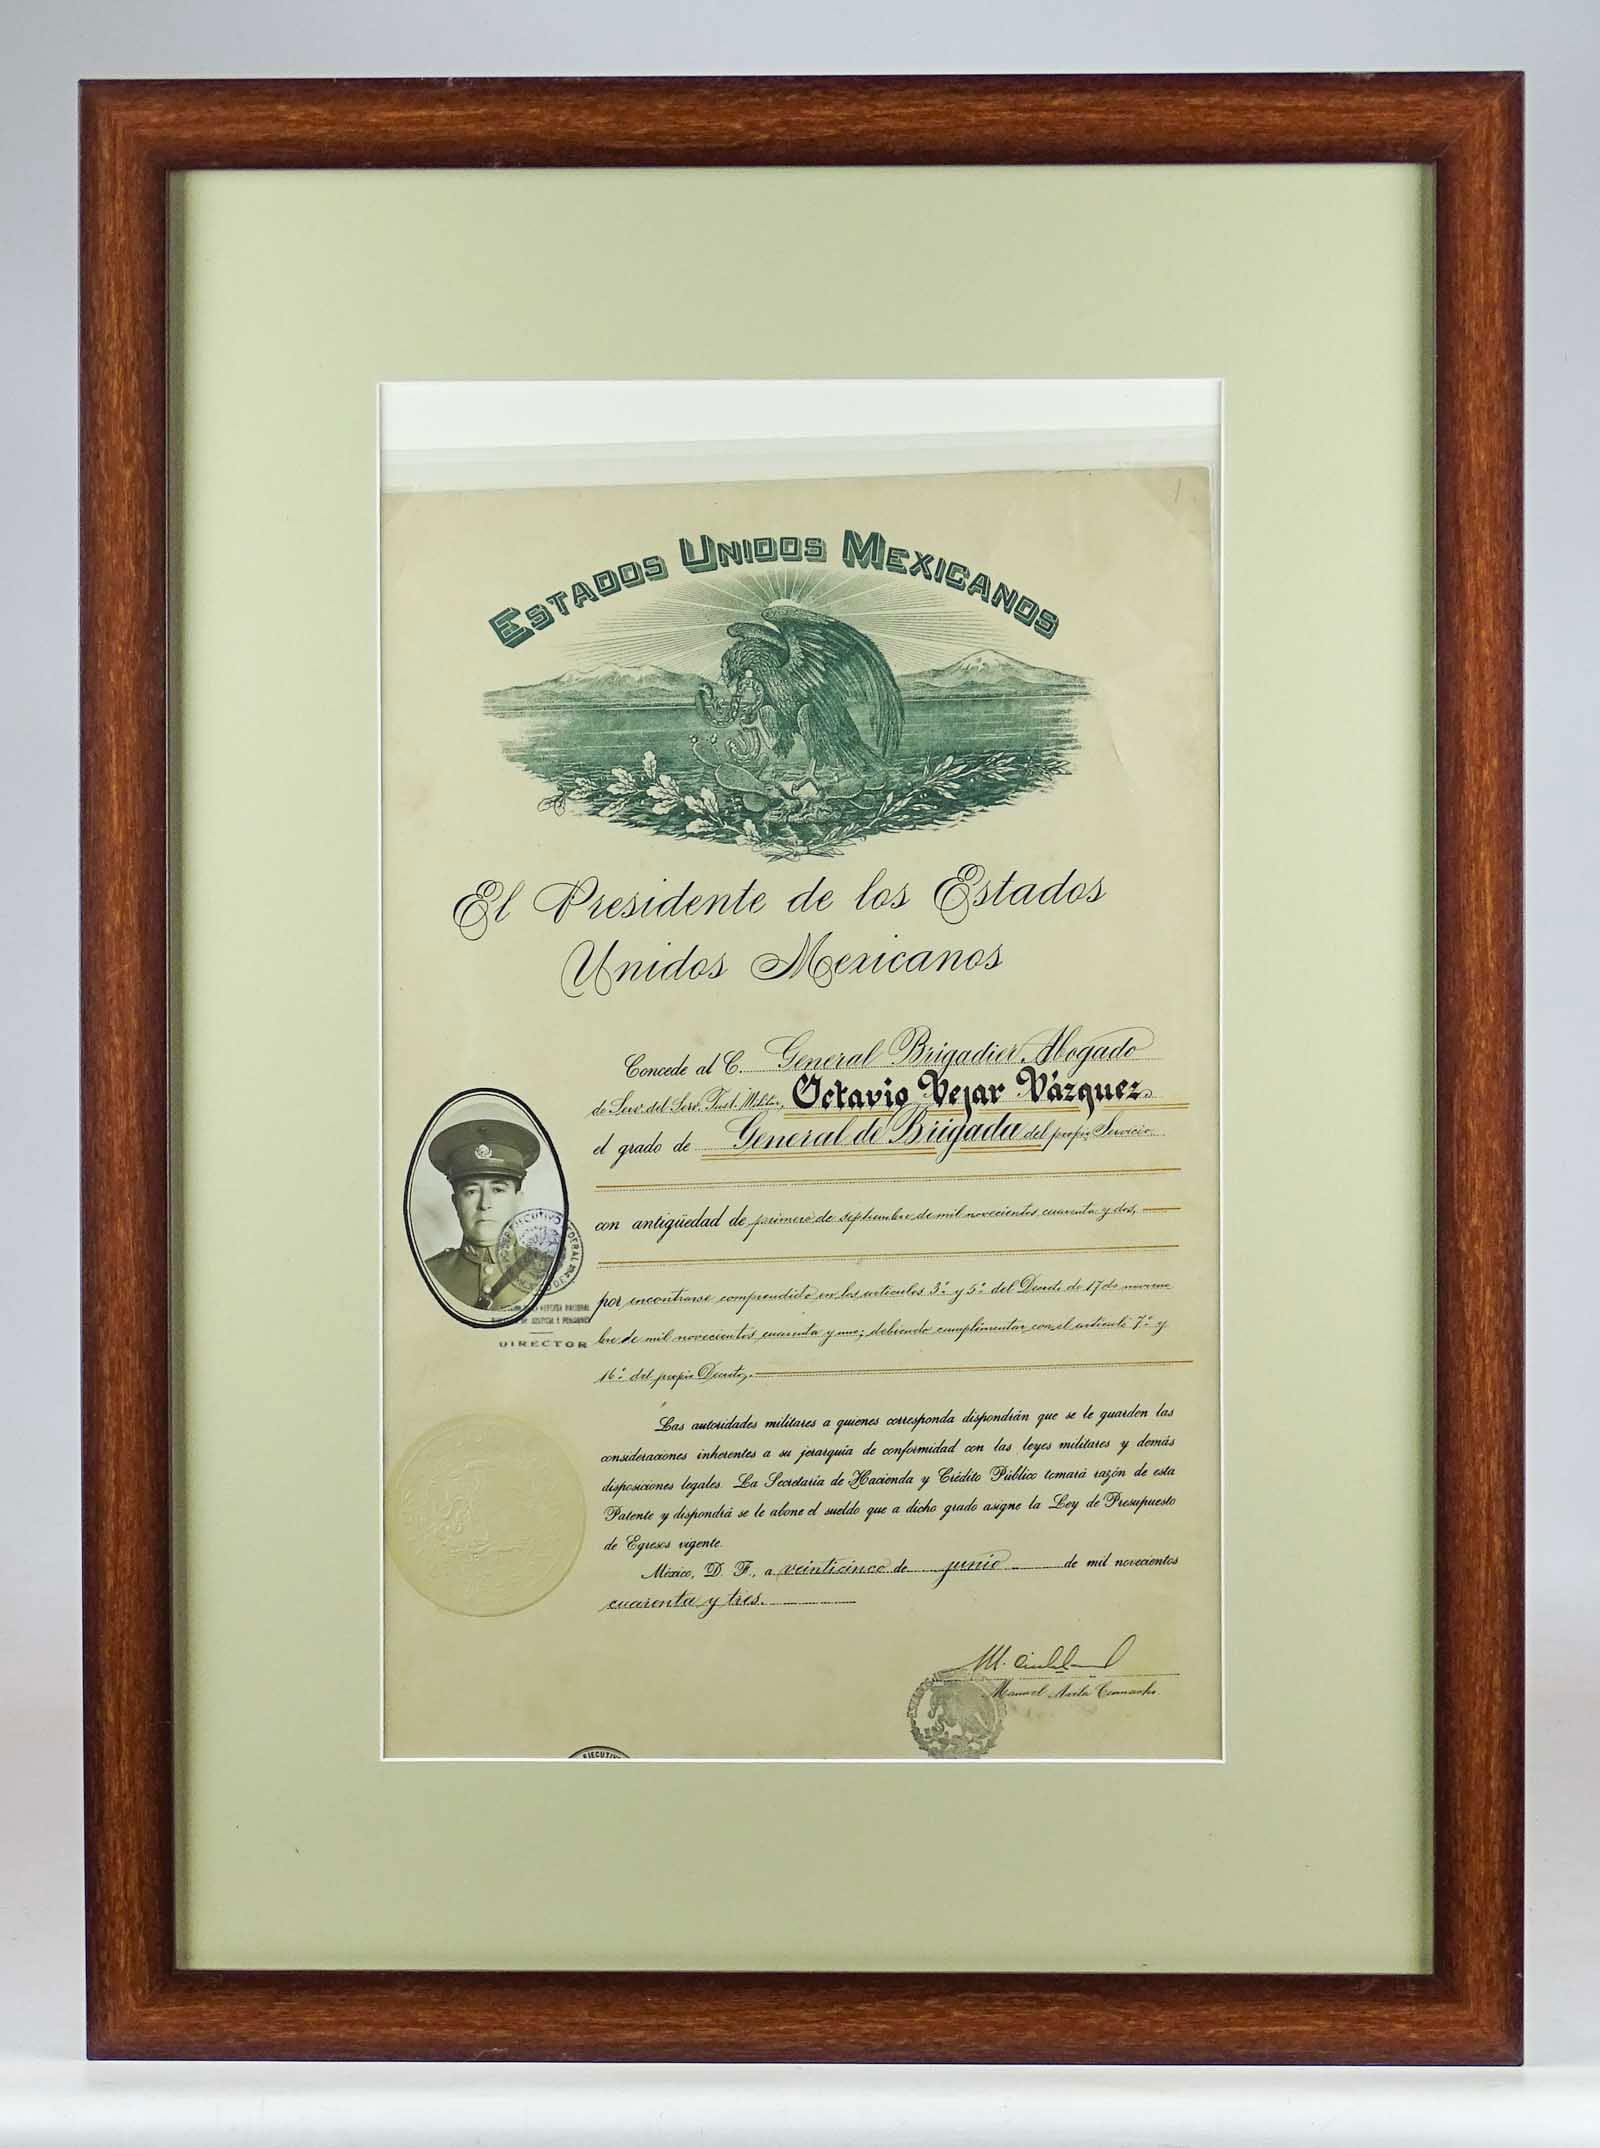 1
ESTADOS UNIDOS MEXICANOS
El Presidente de los Estados
Unidos Mexicanos
Concede al C. General Brigadier, Abogado
de Serv. del Serv. Just. Militar, Octavio Vejar Vázquez
el grado de General de Brigada del propio Servicio
con antigüedad de primero de septiembre de mil novecientos cuarenta y dos,
por encontrarse comprendido en los artículos 3.º y 5.º del Decreto de 17 de noviem
bre de mil novecientos cuarenta y uno; debiendo cumplimentar con el artículo 7.º y
16.º del propio Decreto,
Las autoridades militares a quienes corresponda dispondrán que se le guarden las
consideraciones inherentes a su jerarquía de conformidad con las leyes militares y demás
disposiciones legales. La Secretaría de Hacienda y Crédito Público tomará razón de esta
Patente y dispondrá se le abone el sueldo que a dicho grado asigne la Ley de Presupuesto
de Egresos vigente.
México, D. F., a veinticinco de junio de mil novecientos
cuarenta y tres.
Manuel Avila Camacho.
EJECUTIVO
DEFENSA NACIONAL
DE JUSTICIA Y PENSIONES
DIRECTOR